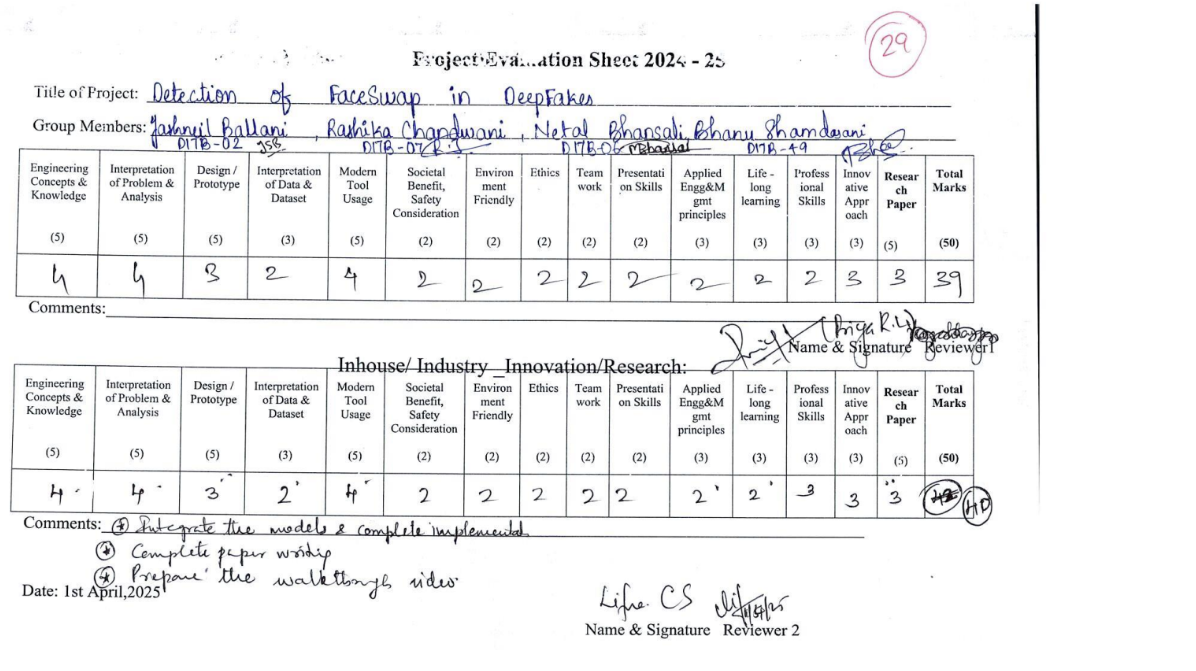 29
Project Evaluation Sheet 2024 - 25
Title of Project: Detection of FaceSwap in DeepFakes
Group Members: Jashneil Ballani, Rashika Chandwani, Netal Bhansali, Bhanu Shamdasani
D17B-02 JSB D17B-07 R.J D17B-06 D17B-49
Engineering Concepts & Knowledge (5) Interpretation of Problem & Analysis (5) Design / Prototype (5) Interpretation of Data & Dataset (3) Modern Tool Usage (5) Societal Benefit, Safety Consideration (2) Environ ment Friendly (2) Ethics (2) Team work (2) Presentati on Skills (2) Applied Engg&M gmt principles (3) Life - long learning (3) Profess ional Skills (3) Innov ative Appr oach (3) Resear ch Paper (5) Total Marks (50)
4 4 3 2 4 2 2 2 2 2 2 2 2 3 3 39
Comments:
(Priya R.L)
Name & Signature Reviewer1
Inhouse/ Industry _Innovation/Research:
Engineering Concepts & Knowledge (5) Interpretation of Problem & Analysis (5) Design / Prototype (5) Interpretation of Data & Dataset (3) Modern Tool Usage (5) Societal Benefit, Safety Consideration (2) Environ ment Friendly (2) Ethics (2) Team work (2) Presentati on Skills (2) Applied Engg&M gmt principles (3) Life - long learning (3) Profess ional Skills (3) Innov ative Appr oach (3) Resear ch Paper (5) Total Marks (50)
4 4 3 2 4 2 2 2 2 2 2 2 3 3 3 40
Comments: Integrate the models & complete
Complete paper
Prepare the video
Date: 1st April,2025
CS
Name & Signature Reviewer 2